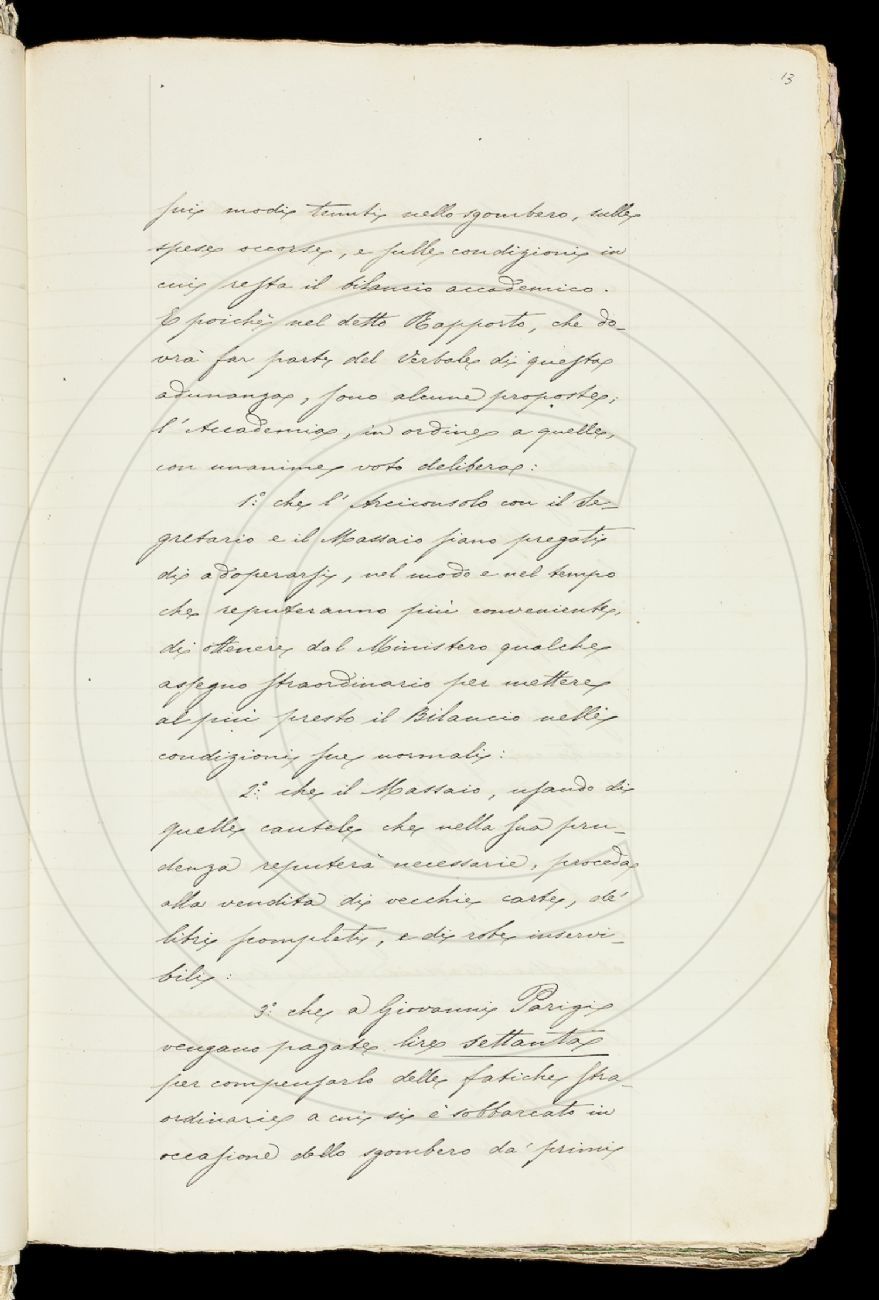 13
sui modi tenuti nello sgombero, sulle
spese occorse, e sulle condizioni in
cui resta il bilancio accademico.
E poichè nel detto Rapporto, che do-
vrà far parte del Verbale di questa
adunanza, sono alcune proposte;
l'Accademia, in ordine a quelle,
con unanime voto delibera:
1º: che l'Arciconsolo con il Se-
gretario e il Massaio siano pregati
di adoperarsi, nel modo e nel tempo
che reputeranno più conveniente,
di ottenere dal Ministero qualche
assegno straordinario per mettere
al più presto il Bilancio nelle
condizioni sue normali:
2º: che il Massaio, usando di
quelle cautele che nella sua pru-
denza reputerà necessarie, proceda
alla vendita di vecchie carte, de'
libri scompleti, e di robe inservi-
bili:
3º: che a Giovanni Parigi
vengano pagate lire settanta
per compensarlo delle fatiche stra-
ordinarie a cui si è sobbarcato in
occasione dello sgombero da' primi